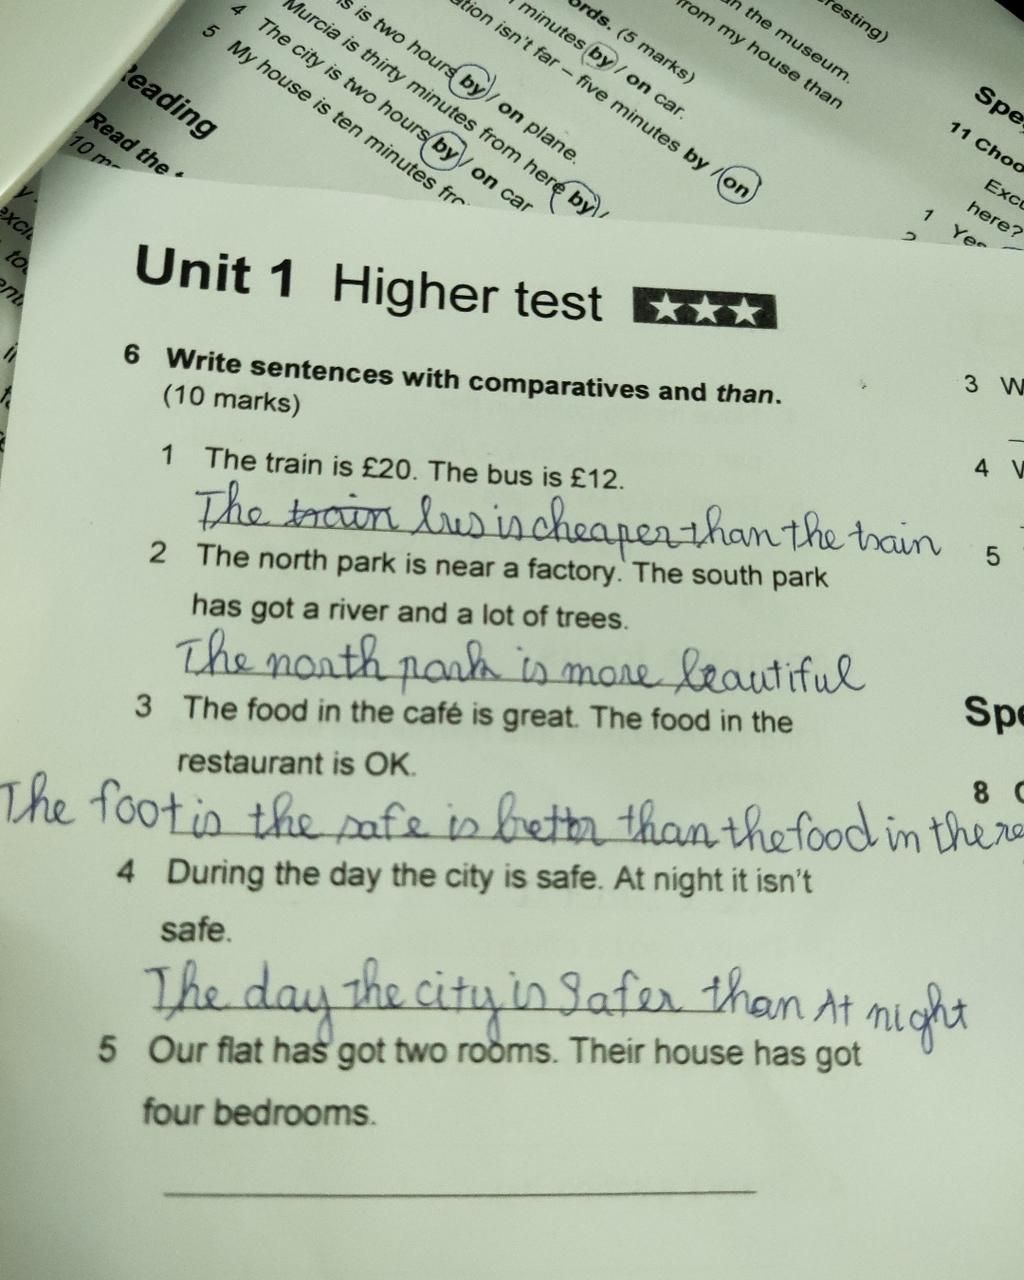 ords. (5 marks)
resting)
n the museum.
from my house than
minutes by / on car.
ation isn't far – five minutes by / on
is two hours by / on plane.
4 Murcia is thirty minutes from here by /
The city is two hours by / on car
5 My house is ten minutes fro
Reading
Read the t
10 m
Spe
11 Choo
Excu
here?
1 Yes
2
Unit 1 Higher test
6 Write sentences with comparatives and than.
(10 marks)
1 The train is £20. The bus is £12.
The train bus is cheaper than the train
2 The north park is near a factory. The south park
has got a river and a lot of trees.
The north park is more beautiful
3 The food in the café is great. The food in the
restaurant is OK.
The foot is the safe is better than the food in the re
4 During the day the city is safe. At night it isn't
safe.
The day the city is Safer than At night
5 Our flat has got two rooms. Their house has got
four bedrooms.
3 W
4
5
Spe
8